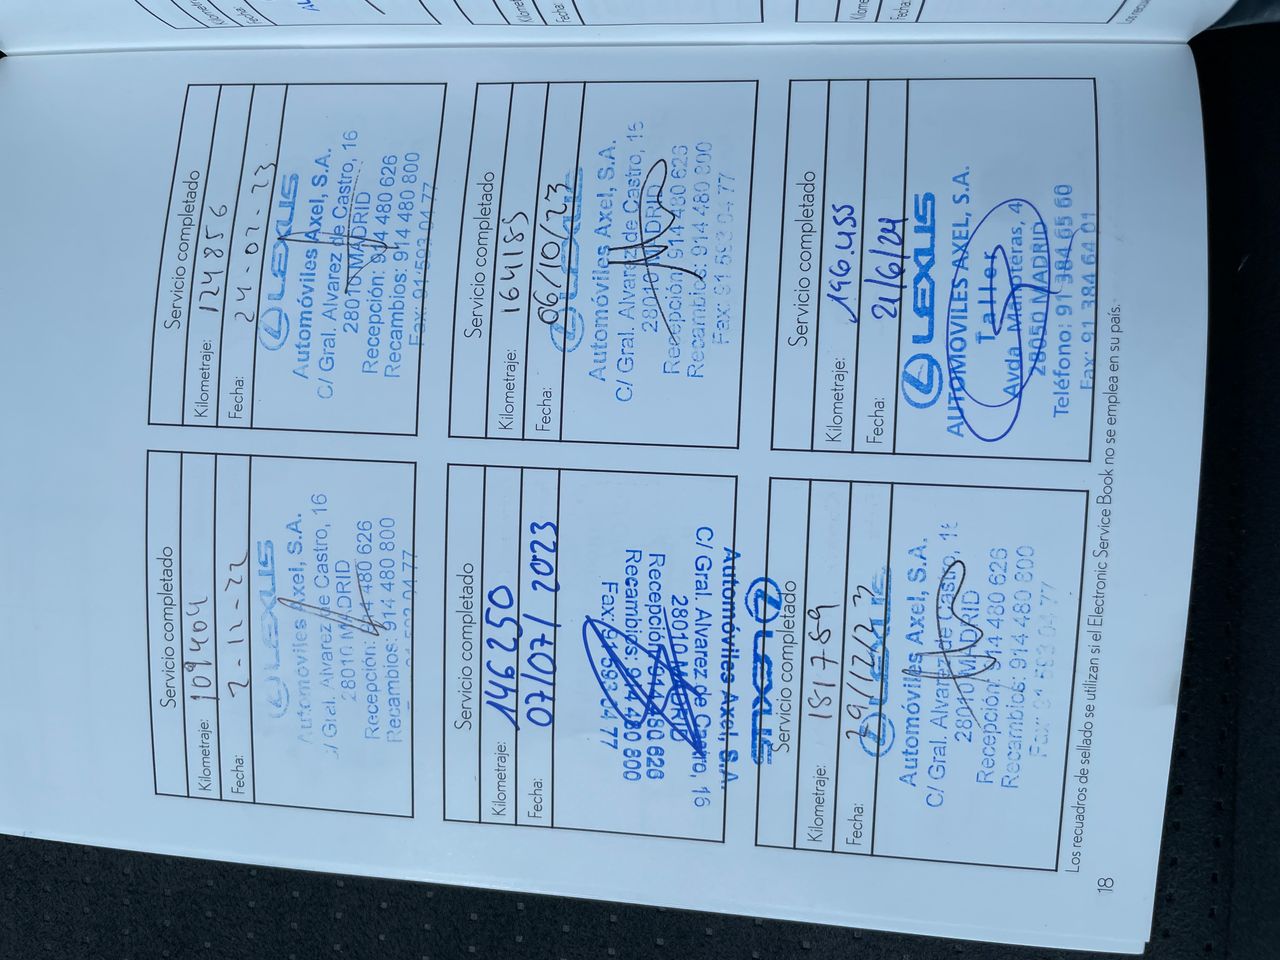 Servicio completado
Kilometraje: 109404
Fecha: 2-11-22
LEXUS
Automóviles Axel, S.A.
C/ Gral. Alvarez de Castro, 16
28010 MADRID
Recepción: 914 480 626
Recambios: 914 480 800
Servicio completado
Kilometraje: 124856
Fecha: 24-02-23
LEXUS
Automóviles Axel, S.A.
C/ Gral. Alvarez de Castro, 16
28010 MADRID
Recepción: 914 480 626
Recambios: 914 480 800
Fax: 91 593 04 77
Servicio completado
Kilometraje: 146250
Fecha: 07/07/2023
LEXUS
Automóviles Axel, S.A.
C/ Gral. Alvarez de Castro, 16
28010 MADRID
Recepción: 914 480 626
Recambios: 914 480 800
Fax: 91 593 04 77
Servicio completado
Kilometraje: 164185
Fecha: 06/10/23
LEXUS
Automóviles Axel, S.A.
C/ Gral. Alvarez de Castro, 16
28010 MADRID
Recepción: 914 480 626
Recambios: 914 480 800
Fax: 91 593 04 77
Servicio completado
Kilometraje: 181789
Fecha: 29/12/23
LEXUS
Automóviles Axel, S.A.
C/ Gral. Alvarez de Castro, 16
28010 MADRID
Recepción: 914 480 626
Recambios: 914 480 800
Fax: 91 593 04 77
Servicio completado
Kilometraje: 196.455
Fecha: 21/6/24
LEXUS
AUTOMOVILES AXEL, S.A.
Taller
Avda Manoteras, 4
28050 MADRID
Teléfono: 91 384 65 60
Fax: 91 384 64 01
Los recuadros de sellado se utilizan si el Electronic Service Book no se emplea en su país.
18